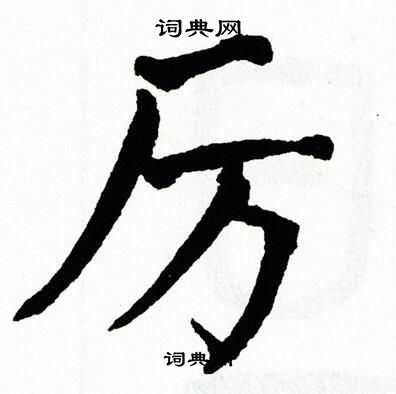 词典网
厉
词典网